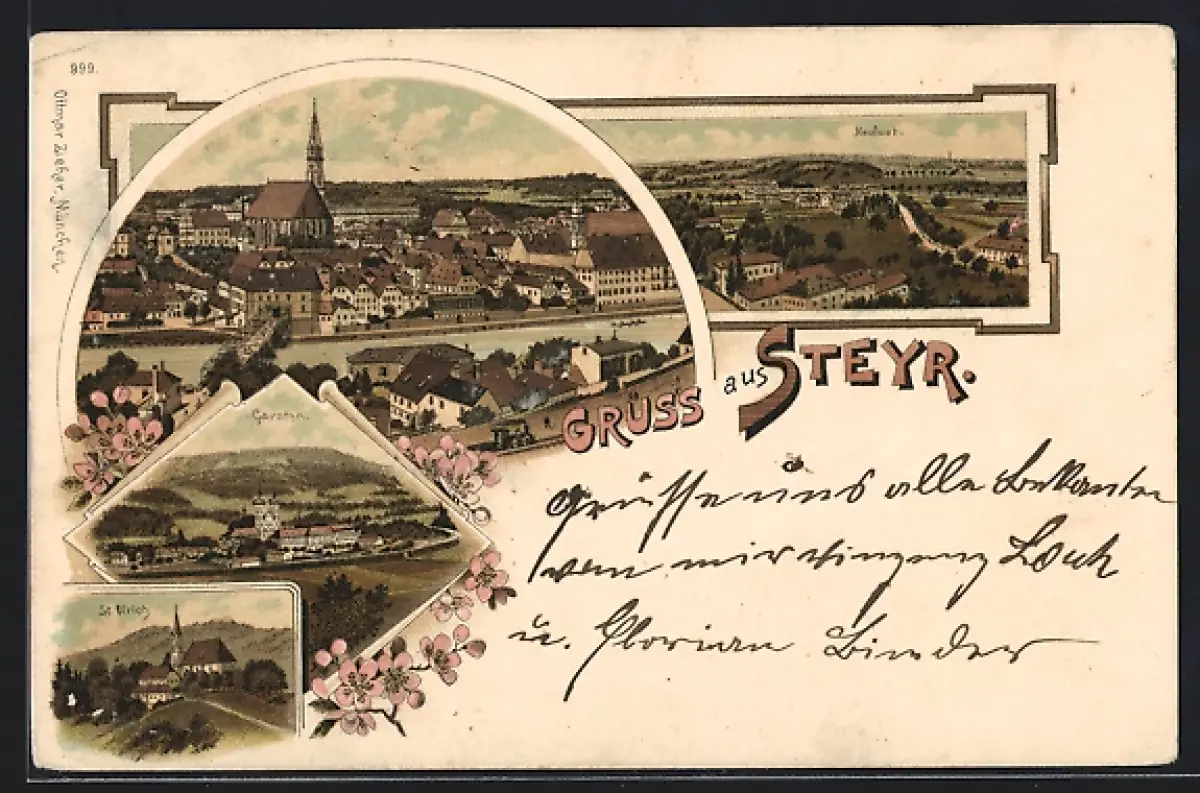 999.
Ottmar Zieher, München.
Neulust.
Garsten.
St Ulrich
GRUSS aus STEYR.
Grüsse uns alle Bekanten
von mir
u. Florian Binder